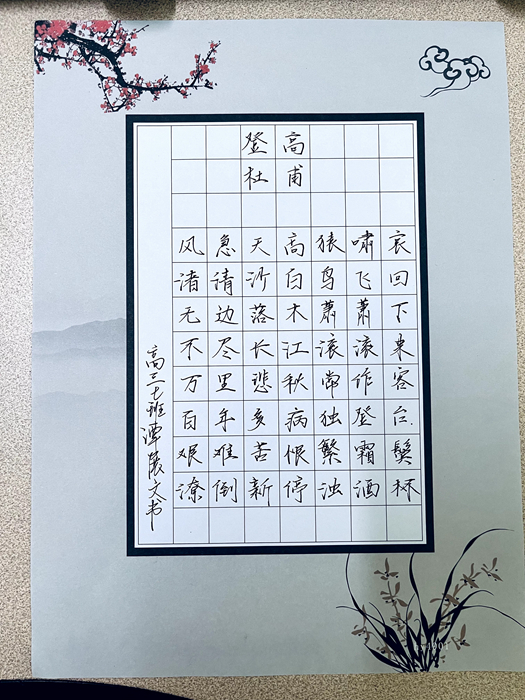 登高
杜甫
风急天高猿嘯哀
渚清沙白鸟飞回
无边落木蕭蕭下
不尽长江滚滚来
万里悲秋常作客
百年多病独登台
艰难苦恨繁霜鬓
潦倒新停浊酒杯
高三七班谭展文书